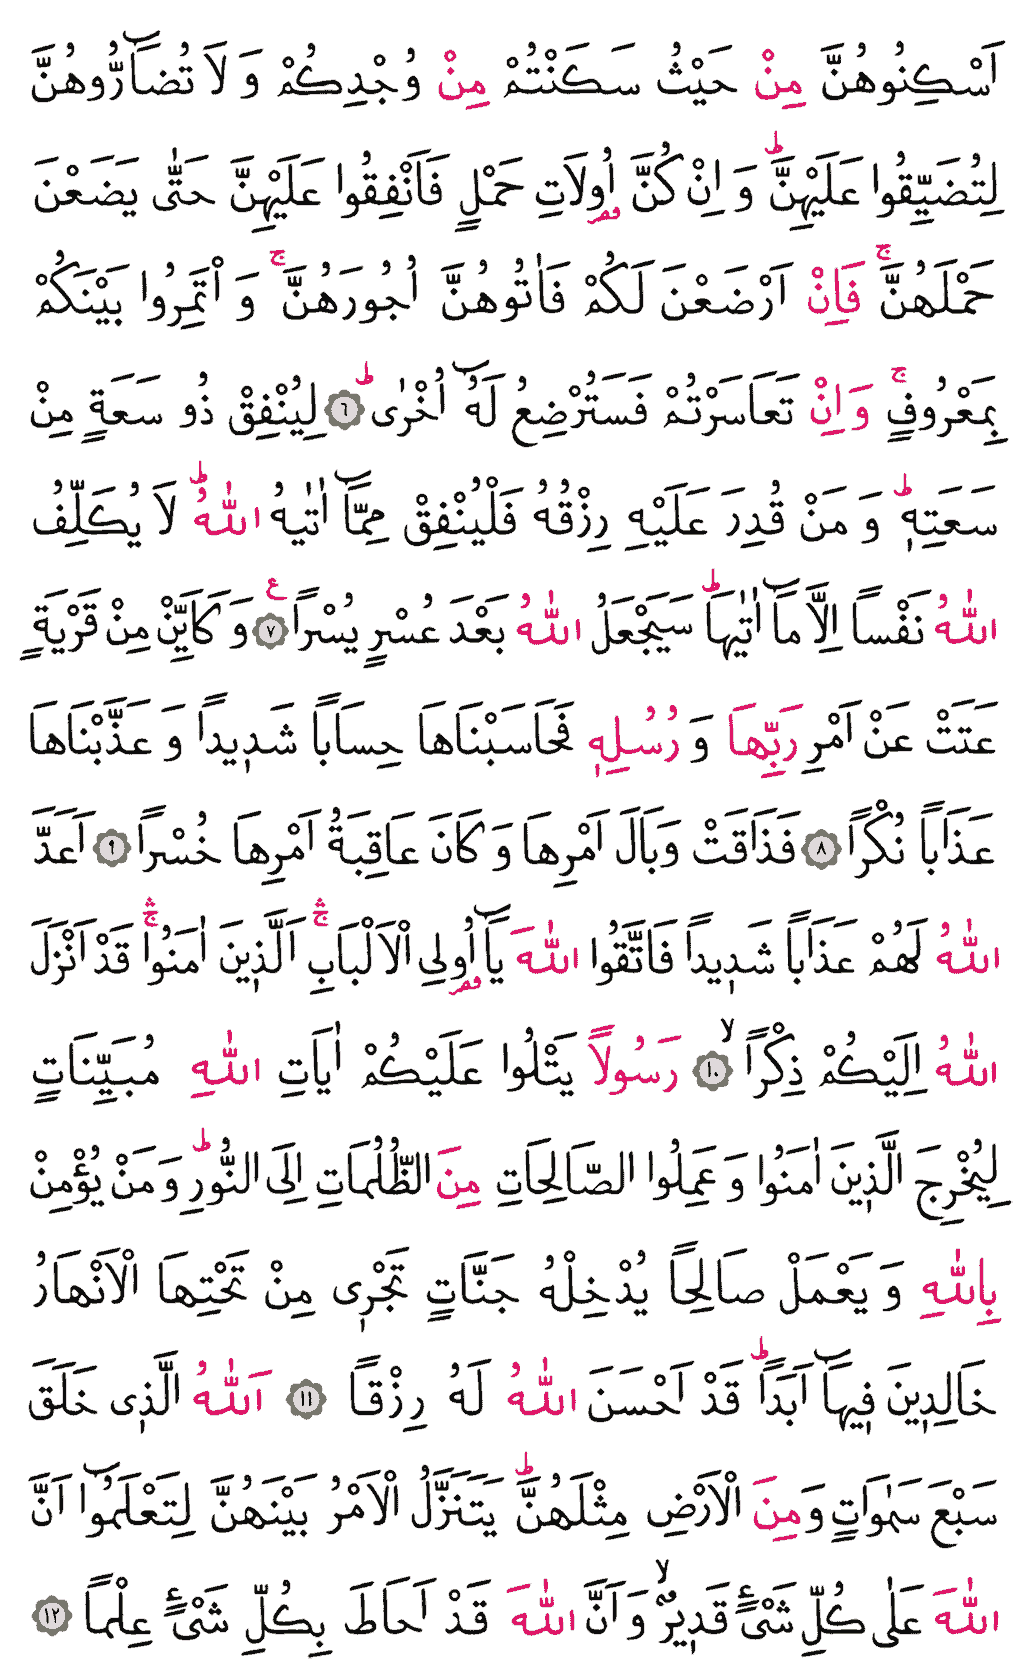 اَسْكِنُوهُنَّ مِنْ حَيْثُ سَكَنْتُمْ مِنْ وُجْدِكُمْ وَ لَا تُضَٓارُّوهُنَّ
لِتُضَيِّقُوا عَلَيْهِنَّۜ وَ اِنْ كُنَّ اُو۬لَاتِ حَمْلٍ فَاَنْفِقُوا عَلَيْهِنَّ حَتّٰى يَضَعْنَ
حَمْلَهُنَّۚ فَاِنْ اَرْضَعْنَ لَكُمْ فَاٰتُوهُنَّ اُجُورَهُنَّۚ وَ أْتَمِرُوا بَيْنَكُمْ
بِمَعْرُوفٍۚ وَ اِنْ تَعَاسَرْتُمْ فَسَتُرْضِعُ لَهُٓ اُخْرٰىۜ ﴿٦﴾ لِيُنْفِقْ ذُو سَعَةٍ مِنْ
سَعَتِه۪ۜ وَ مَنْ قُدِرَ عَلَيْهِ رِزْقُهُ فَلْيُنْفِقْ مِمَّٓا اٰتٰيهُ اللّٰهُۜ لَا يُكَلِّفُ
اللّٰهُ نَفْسًا اِلَّا مَٓا اٰتٰيهَاۜ سَيَجْعَلُ اللّٰهُ بَعْدَ عُسْرٍ يُسْرًا۟ ﴿٧﴾ وَ كَاَيِّنْ مِنْ قَرْيَةٍ
عَتَتْ عَنْ اَمْرِ رَبِّهَا وَ رُسُلِه۪ فَحَاسَبْنَاهَا حِسَابًا شَد۪يدًا وَ عَذَّبْنَاهَا
عَذَابًا نُكْرًا ﴿٨﴾ فَذَاقَتْ وَبَالَ اَمْرِهَا وَ كَانَ عَاقِبَةُ اَمْرِهَا خُسْرًا ﴿٩﴾ اَعَدَّ
اللّٰهُ لَهُمْ عَذَابًا شَد۪يدًا فَاتَّقُوا اللّٰهَ يَٓا اُو۬لِى الْاَلْبَابِۚۛ اَلَّذ۪ينَ اٰمَنُواۚۛ قَدْ اَنْزَلَ
اللّٰهُ اِلَيْكُمْ ذِكْرًاۙ ﴿١٠﴾ رَسُولًا يَتْلُوا عَلَيْكُمْ اٰيَاتِ اللّٰهِ مُبَيِّنَاتٍ
لِيُخْرِجَ الَّذ۪ينَ اٰمَنُوا وَ عَمِلُوا الصَّالِحَاتِ مِنَ الظُّلُمَاتِ اِلَى النُّورِۜ وَ مَنْ يُؤْمِنْ
بِاللّٰهِ وَ يَعْمَلْ صَالِحًا يُدْخِلْهُ جَنَّاتٍ تَجْر۪ى مِنْ تَحْتِهَا الْاَنْهَارُ
خَالِد۪ينَ ف۪يهَٓا اَبَدًاۜ قَدْ اَحْسَنَ اللّٰهُ لَهُ رِزْقًا ﴿١١﴾ اَللّٰهُ الَّذ۪ى خَلَقَ
سَبْعَ سَمٰوَاتٍ وَ مِنَ الْاَرْضِ مِثْلَهُنَّۜ يَتَنَزَّلُ الْاَمْرُ بَيْنَهُنَّ لِتَعْلَمُٓوا اَنَّ
اللّٰهَ عَلٰى كُلِّ شَىْءٍ قَد۪يرٌۙ وَ اَنَّ اللّٰهَ قَدْ اَحَاطَ بِكُلِّ شَىْءٍ عِلْمًا ﴿١٢﴾